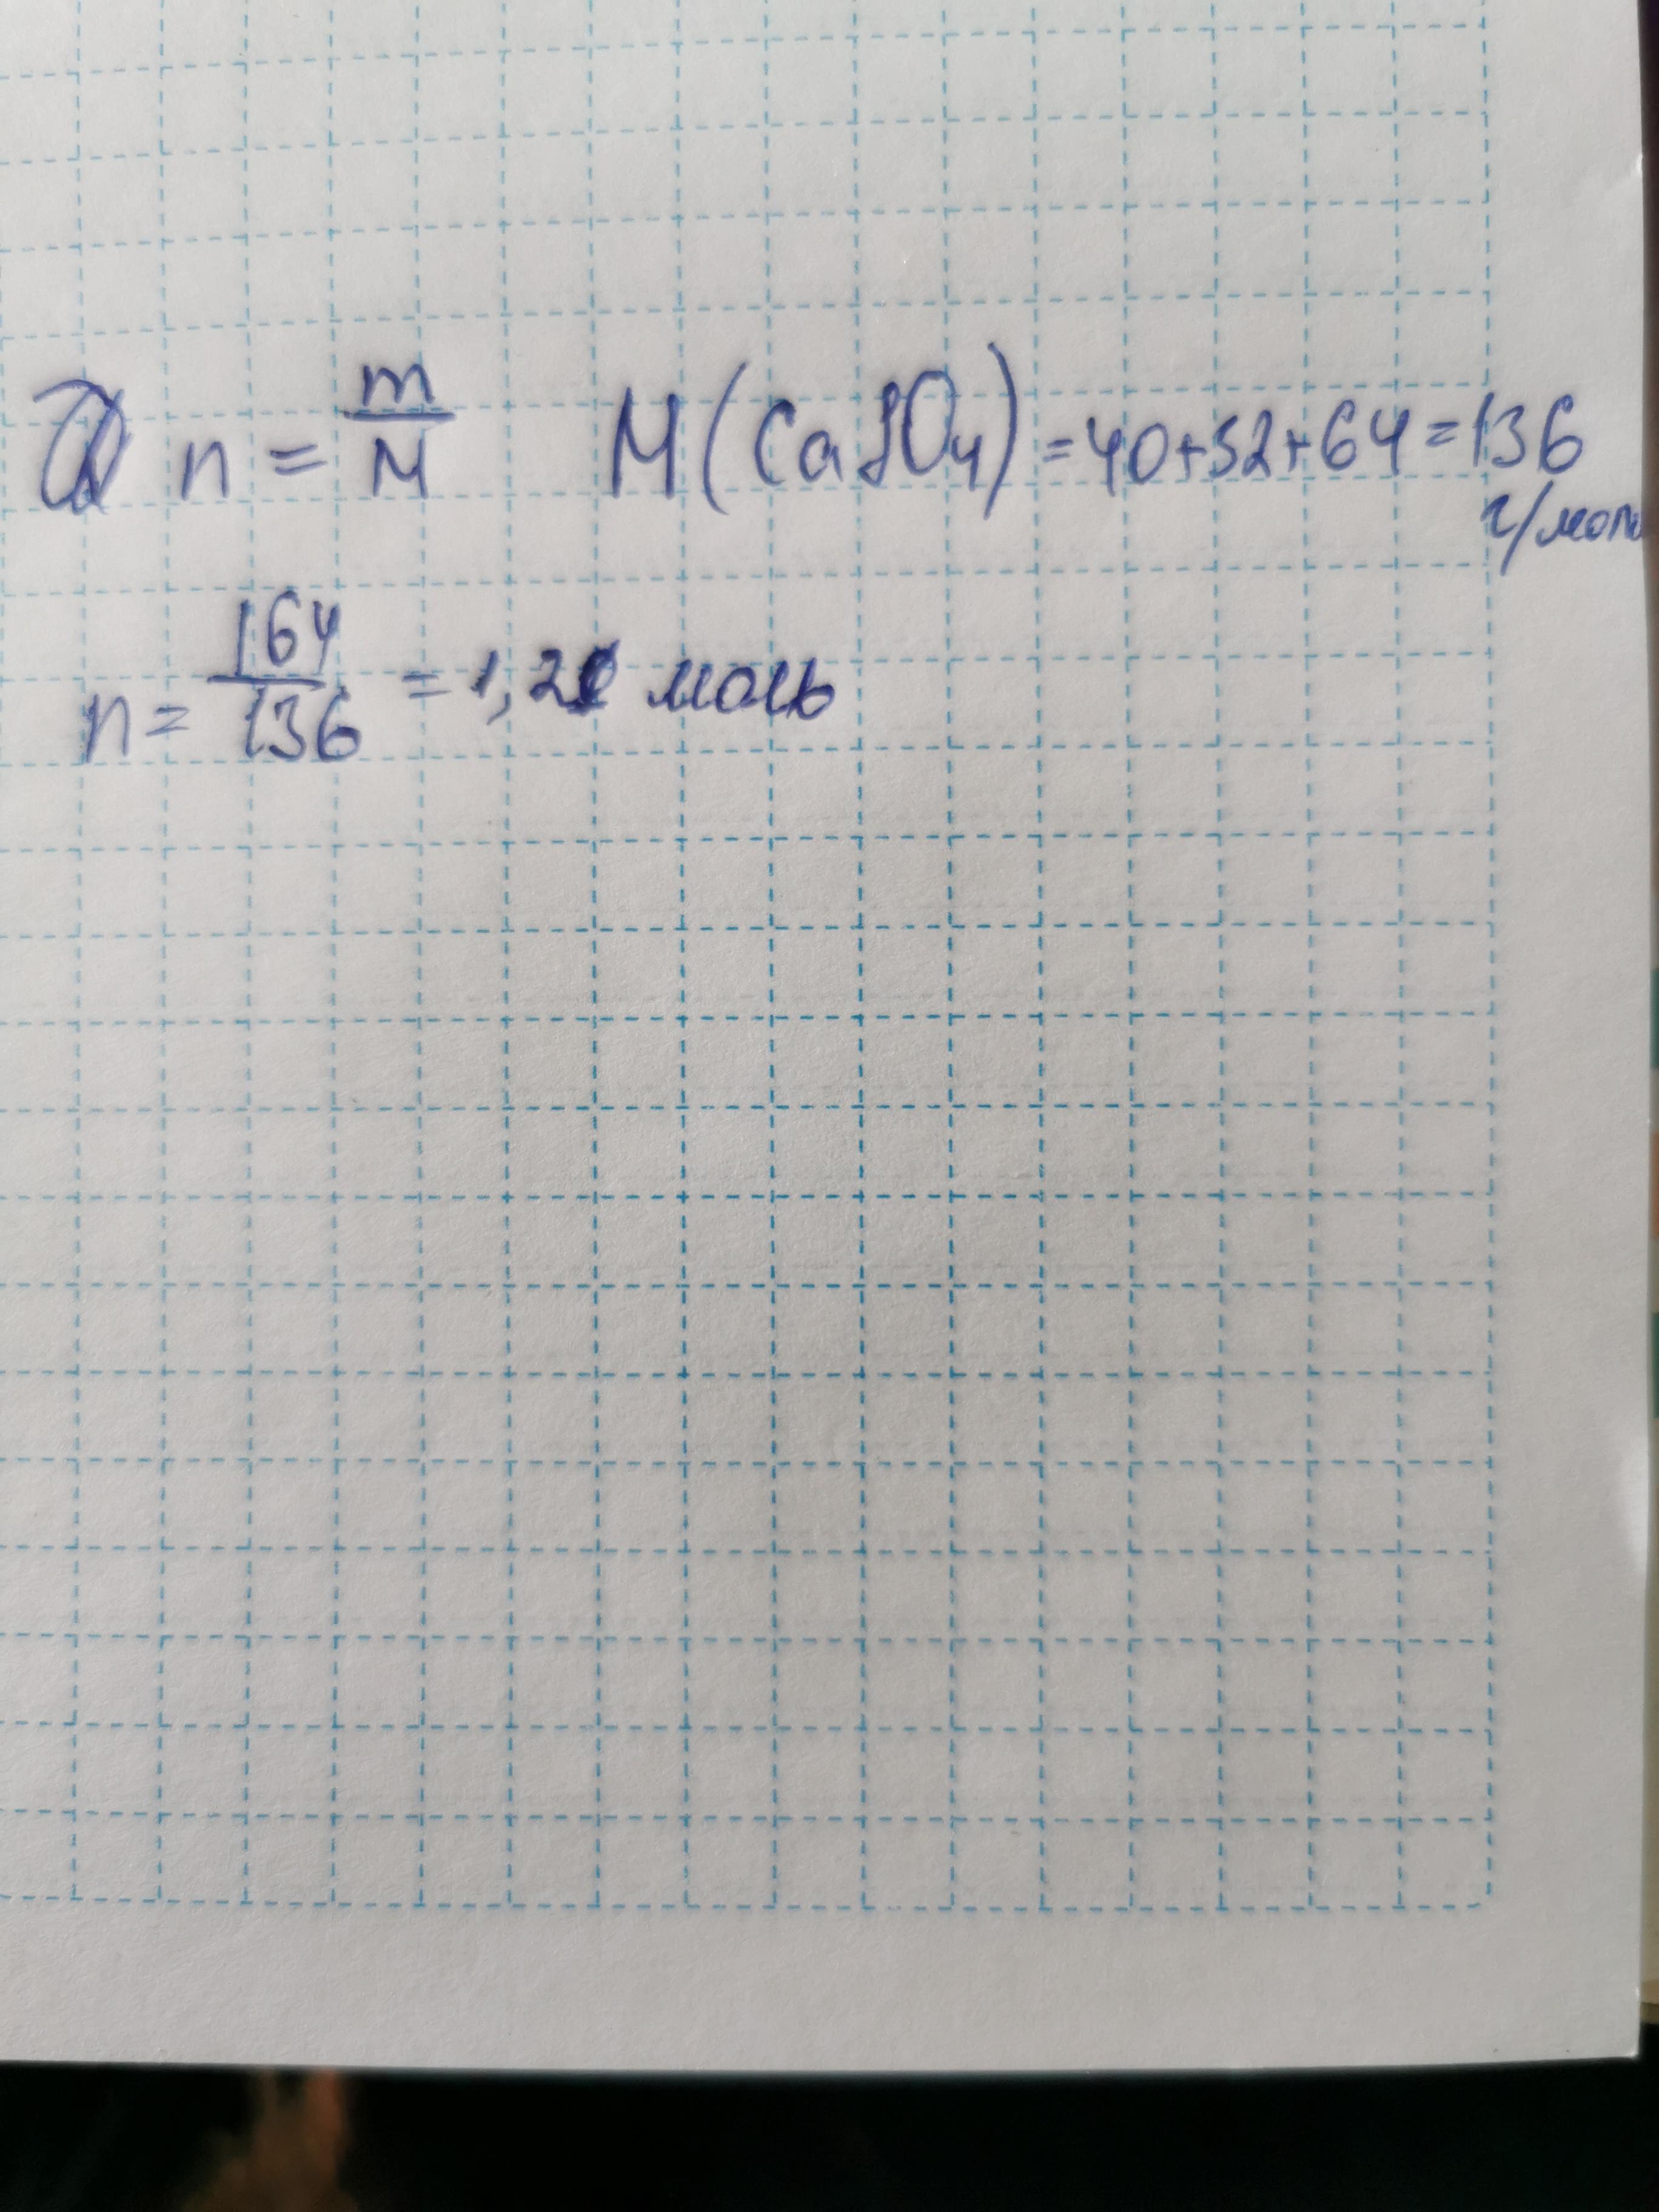 n = m/M M(CaSO₄) = 40+32+64 = 136
г/моль
n = 164/136 = 1,21 моль